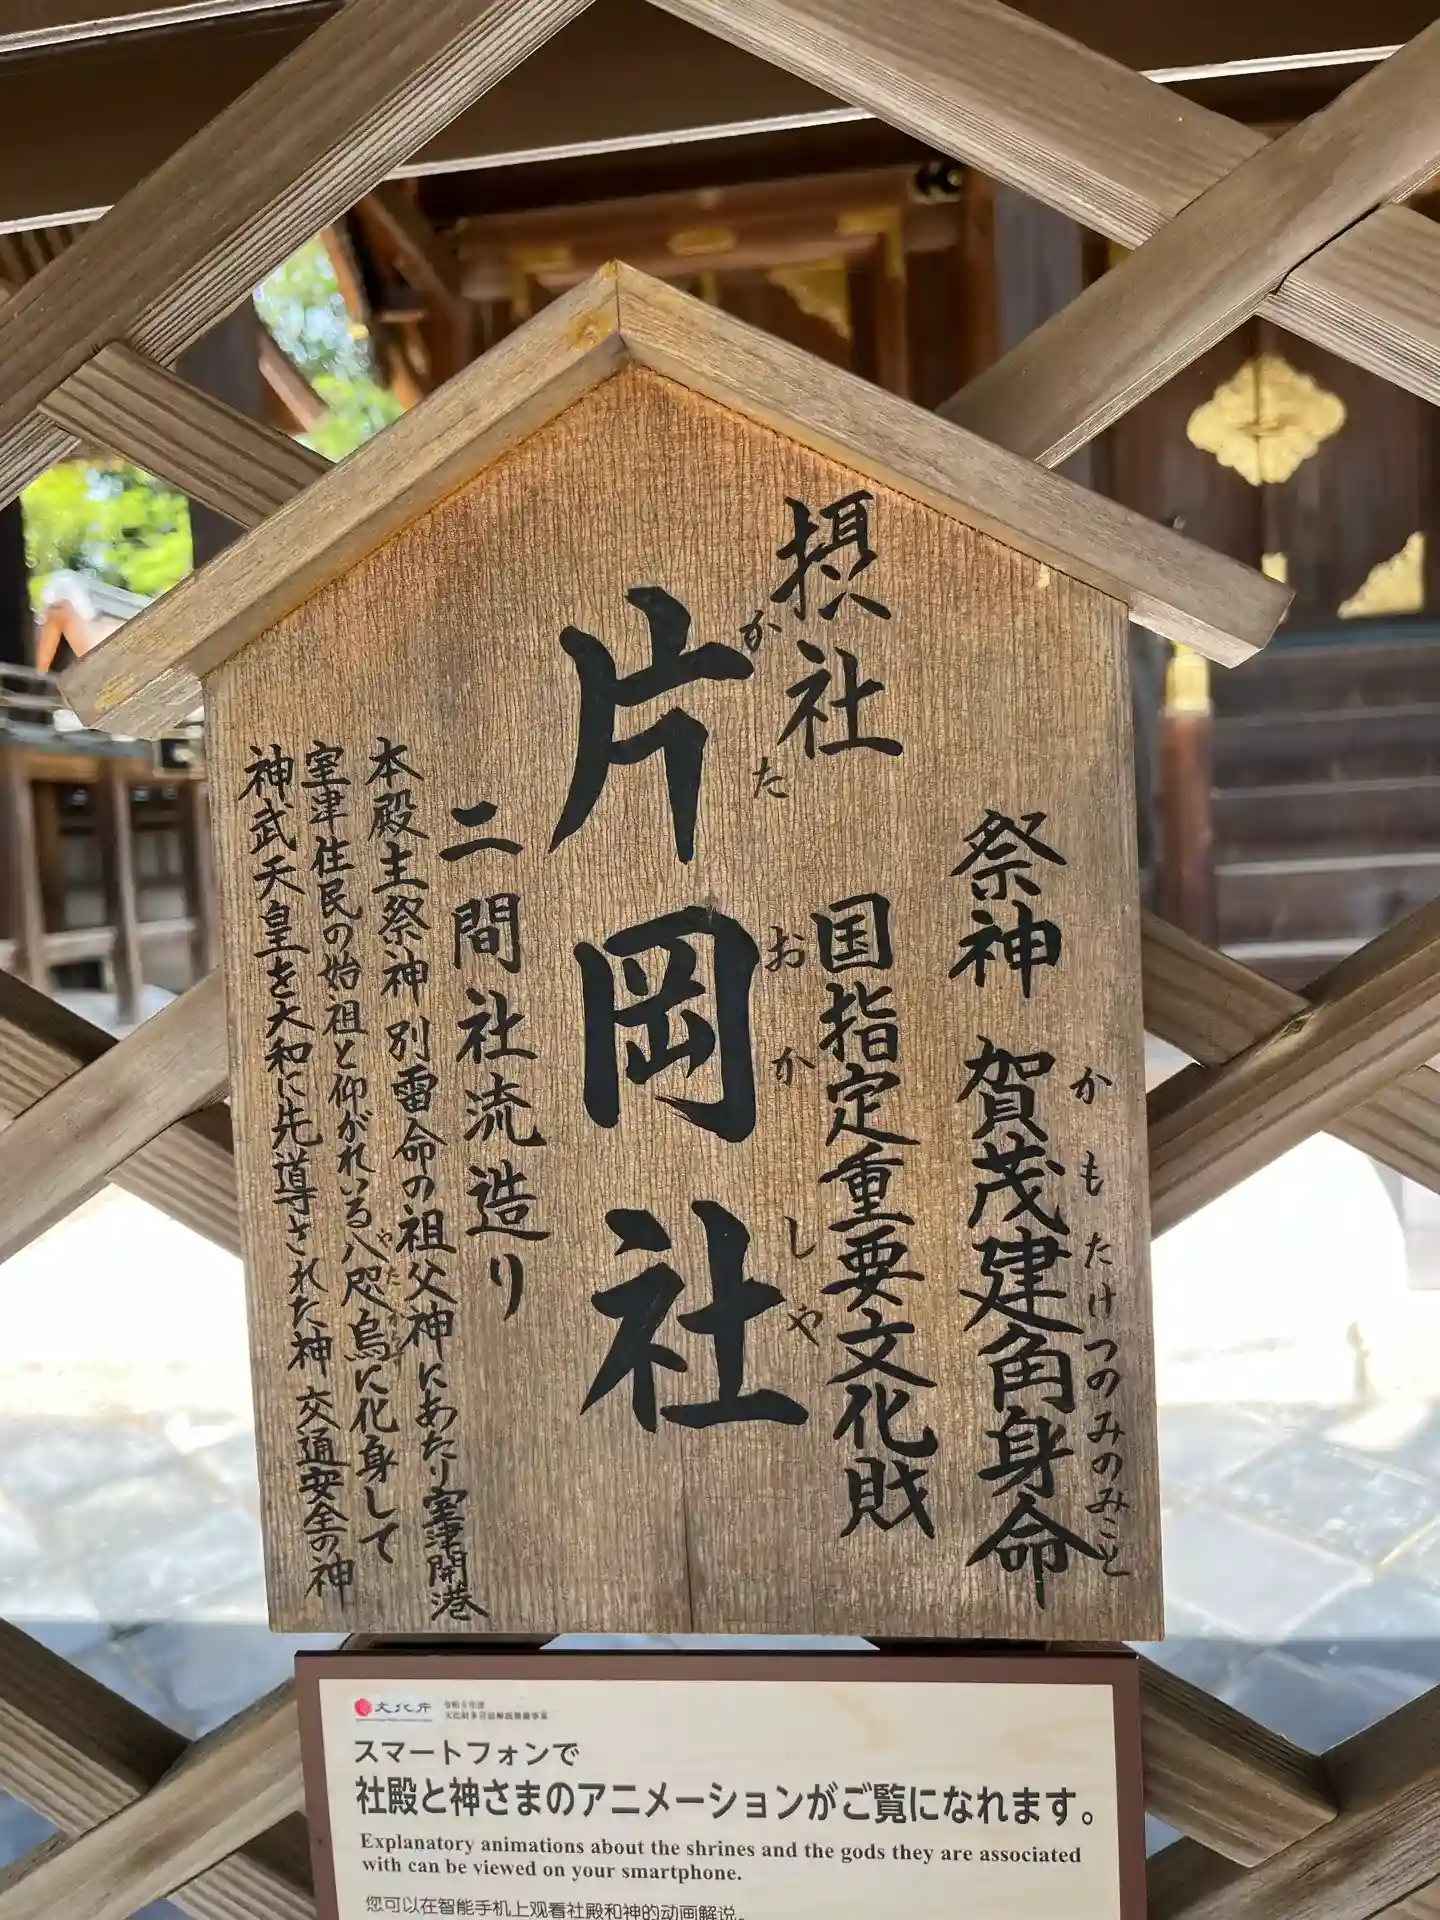 祭神 賀茂建角身命
かもたけつのみのみこと
摂社
国指定重要文化財
片岡社
かたおかしや
二間社流造り
本殿主祭神別雷命の祖父神にあたり室津開港
室津住民の始祖と仰がれいる八咫烏に化身して
やたがらす
神武天皇を大和に先導された神 交通安全の神
文化庁
令和5年度
文化財多言語解説整備事業
スマートフォンで
社殿と神さまのアニメーションがご覧になれます。
Explanatory animations about the shrines and the gods they are associated
with can be viewed on your smartphone.
您可以在智能手机上观看社殿和神的动画解说。